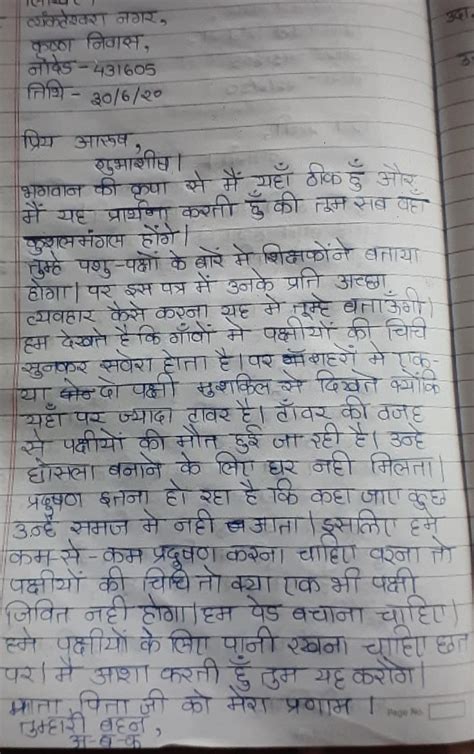 व्यंकटेश्वरा नगर,
कृष्णा निवास,
नांदेड - 431605
तिथि - ३०/6/२०
प्रिय आरुष,
शुभाशीष।
भगवान की कृपा से मैं यहाँ ठीक हुँ और
मैं यह प्रार्थना करती हुँ की तुम सब वहाँ
कुशलमंगल होंगे।
तुम्हे पशु-पक्षी के बारें मे शिक्षकोंने बताया
होगा। पर इस पत्र में उनके प्रति अच्छा
व्यवहार कैसे करना यह मे तुम्हे बताऊँगी।
हम देखते है कि गाँवों मे पक्षीयों की चिंचि
सुनकर सवेरा होता है। पर शहरों मे एक-
या दो पक्षी मुशकिल से दिखते क्योंकि
यहाँ पर ज्यादा टावर है। टाँवर की वजह
से पक्षीयों की मौत हुई जा रही है। उन्हे
घोसला बनाने के लिए घर नही मिलता।
प्रदुषण इतना हो रहा है कि कहा जाए कुछ
उन्हे समाज मे नही आता। इसलिए हमे
कम-से-कम प्रदुषण करना चाहिए वरना तो
पक्षीयों की चिंचि तो क्या एक भी पक्षी
जिवित नही होगा। हम पेड बचाना चाहिए।
हमे पक्षीयों के लिए पानी रखना चाहिए छत
पर। मै आशा करती हुँ तुम यह करोगे।
माता, पिता जी को मेरा प्रणाम।
Page No.
तुम्हारी बहन,
अ-ब-क